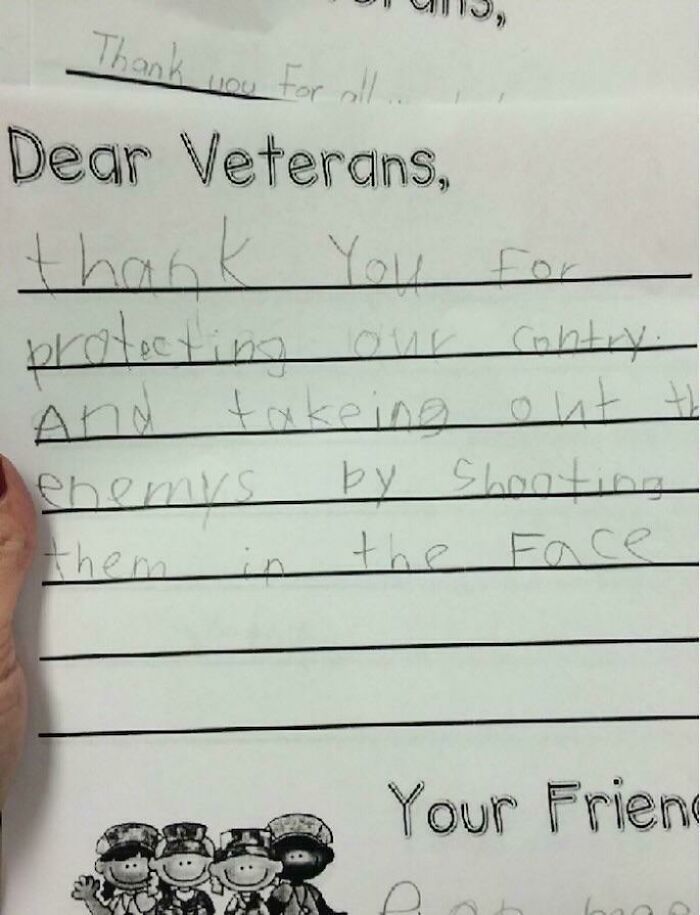 Thank you For all
Dear Veterans,
thank You For
protecting our contry.
And takeing out th
enemys by Shooting
them in the Face
Your Frien